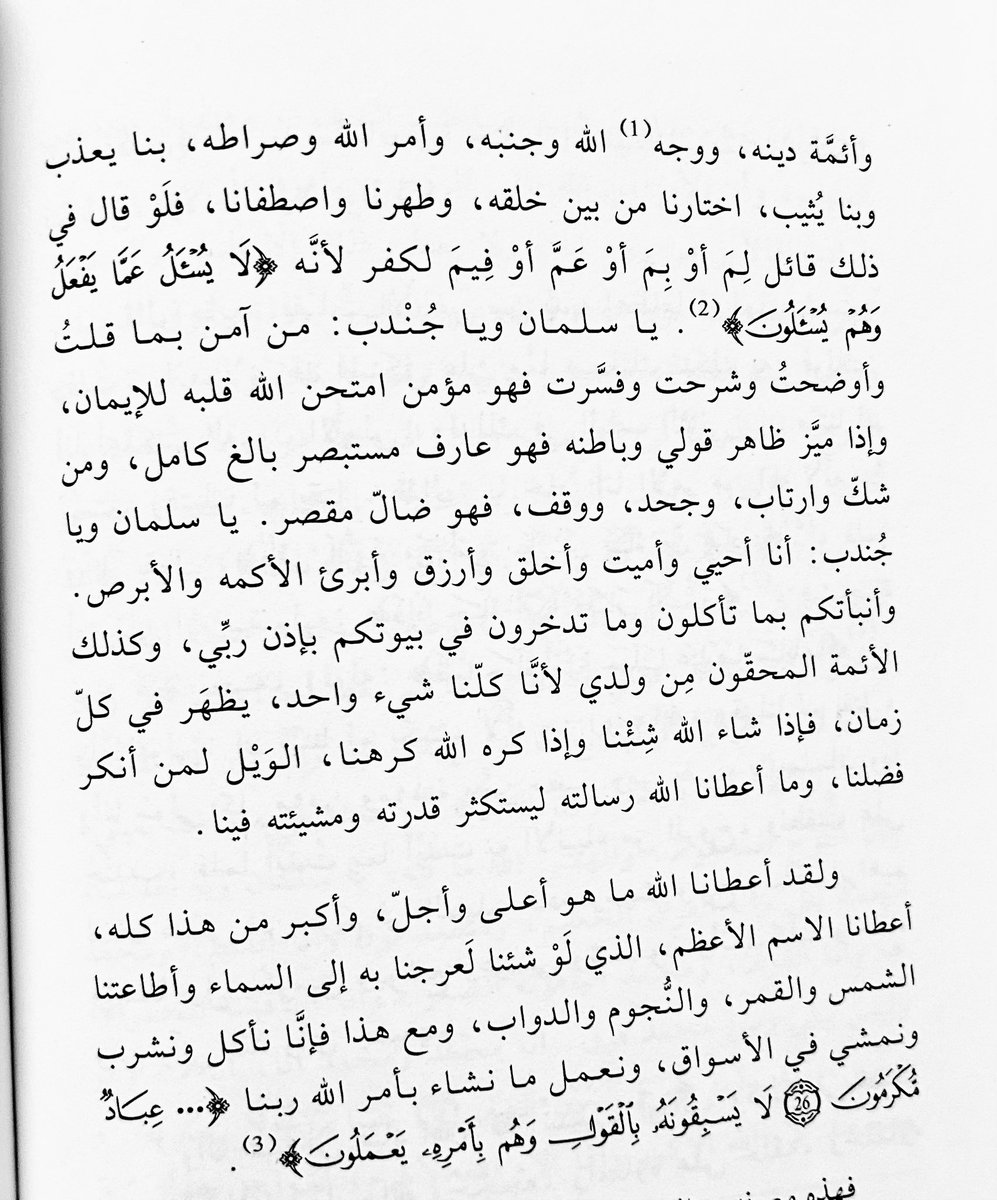 وأئمَّة دينه، ووجه(1) الله وجنبه، وأمر الله وصراطه، بنا يعذب
وبنا يُثيب، اختارنا من بين خلقه، وطهرنا واصطفانا، فلَوْ قال في
ذلك قائل لِمَ أوْ بِمَ أوْ عَمَّ أوْ فِيمَ لكفر لأنَّه ﴿لَا يُسْـَٔلُ عَمَّا يَفْعَلُ
وَهُمْ يُسْـَٔلُونَ﴾(2). يا سلمان ويا جُنْدب: من آمن بما قلتُ
وأوضحتُ وشرحت وفسَّرت فهو مؤمن امتحن الله قلبه للإيمان،
وإذا ميَّز ظاهر قولي وباطنه فهو عارف مستبصر بالغ كامل، ومن
شكّ وارتاب، وجحد، ووقف، فهو ضالّ مقصر. يا سلمان ويا
جُندب: أنا أحيي وأميت وأخلق وأرزق وأبرئ الأكمه والأبرص.
وأنبأتكم بما تأكلون وما تدخرون في بيوتكم بإذن ربِّي، وكذلك
الأئمة المحقّون مِن ولدي لأنَّا كلّنا شيء واحد، يظهَر في كلّ
زمان، فإذا شاء الله شِئْنا وإذا كره الله كرهنا، الوَيْل لمن أنكر
فضلنا، وما أعطانا الله رسالته ليستكثر قدرته ومشيئته فينا.
ولقد أعطانا الله ما هو أعلى وأجلّ، وأكبر من هذا كله،
أعطانا الاسم الأعظم، الذي لَوْ شئنا لَعرجنا به إلى السماء وأطاعتنا
الشمس والقمر، والنُّجوم والدواب، ومع هذا فإنَّا نأكل ونشرب
ونمشي في الأسواق، ونعمل ما نشاء بأمر الله ربنا ﴿... عِبَادٌ
مُّكْرَمُونَ 26 لَا يَسْبِقُونَهُۥ بِٱلْقَوْلِ وَهُم بِأَمْرِهِۦ يَعْمَلُونَ﴾(3).
فهذه